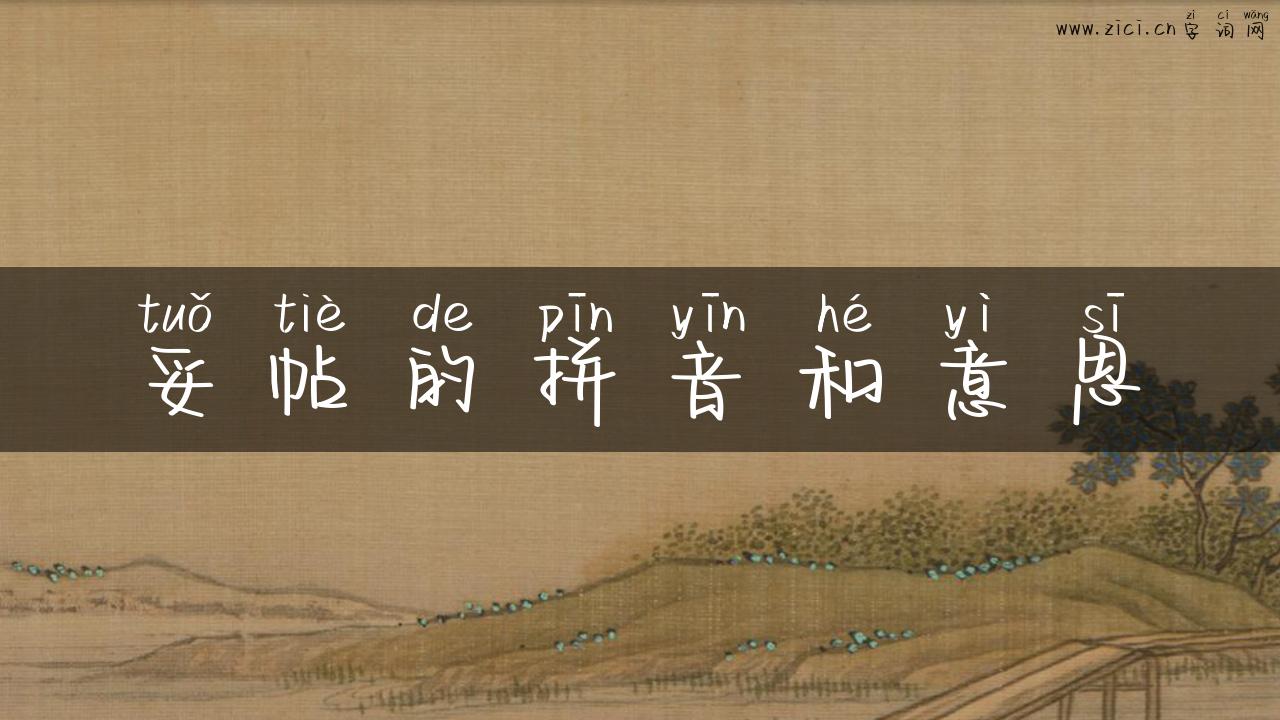 zì cí wǎng
www.zici.cn字词网
tuǒ tiè de pīn yīn hé yì sī
妥帖的拼音和意思